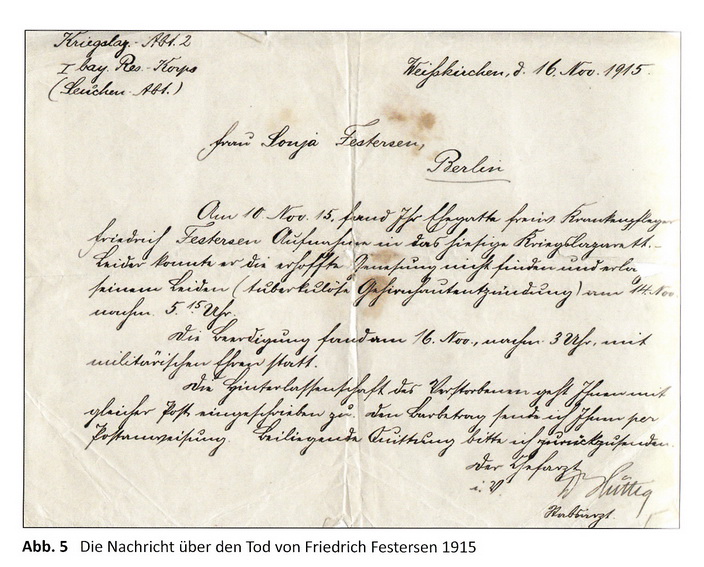 Kriegslaz.-Abt. 2
I bay. Res.-Korps
(Seuchen-Abt.)
Weißkirchen, d. 16. Nov. 1915.
Frau Sonja Festersen,
Berlin
Am 10. Nov. 15. fand Ihr Ehegatte freiw. Krankenpfleger
Friedrich Festersen Aufnahme in das hiesige Kriegslazarett.-
Leider konnte er die erhoffte Genesung nicht finden und erla
seinem Leiden (tuberkulöse Gehirnhautentzündung) am 14. Nov.
nachm. 5.15 Uhr.
Die Beerdigung fand am 16. Nov., nachm. 3 Uhr, mit
militärischen Ehren statt.
Die Hinterlassenschaft des Verstorbenen geht Ihnen mit
gleicher Post eingeschrieben zu. Den Barbetrag sende ich Ihnen per
Postanweisung. Beiliegende Quittung bitte ich zurückzusenden.
Der Chefarzt
i. V. Dr Hüttig
Stabsarzt.
Abb. 5 Die Nachricht über den Tod von Friedrich Festersen 1915